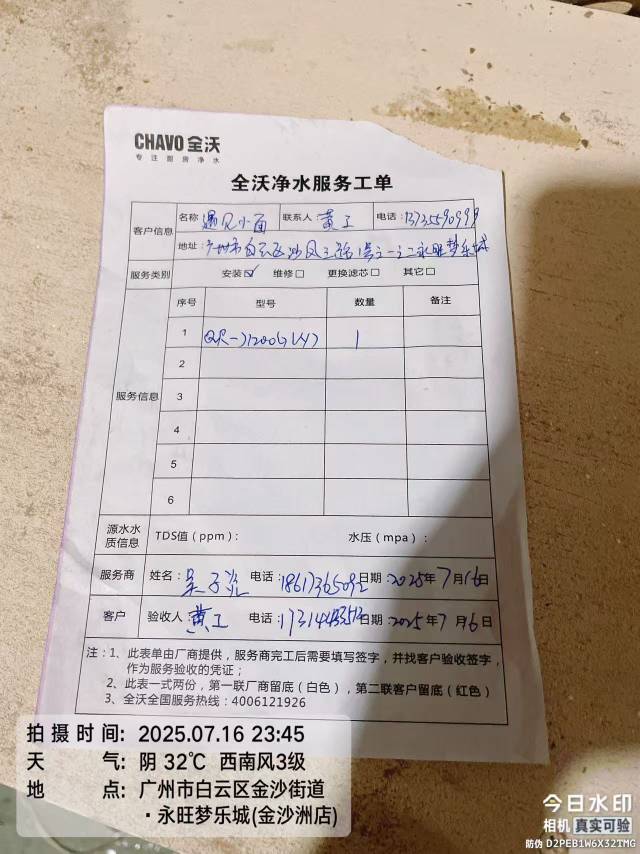 CHAVO 全沃
专注厨房净水
全沃净水服务工单
客户信息 名称 遇见小面 联系人 黄工 电话:
地址:广州市白云区沙凤三路 永旺梦乐城
服务类别 安装☑ 维修□ 更换滤芯□ 其它□
服务信息 序号 型号 数量 备注
1 1
2
3
4
5
6
源水水质信息 TDS值(ppm): 水压(mpa):
服务商 姓名: 电话: 日期:2025年7月16日
客户 验收人 黄工 电话: 日期:2025年7月16日
注:1、此表单由厂商提供,服务商完工后需要填写签字,并找客户验收签字,
作为服务验收的凭证;
2、此表一式两份,第一联厂商留底(白色),第二联客户留底(红色)
3、全沃全国服务热线:4006121926
拍摄时间: 2025.07.16 23:45
天气: 阴 32℃ 西南风3级
地点: 广州市白云区金沙街道
·永旺梦乐城(金沙洲店)
今日水印
相机 真实可验
防伪 D2PEB1W6X32TMG